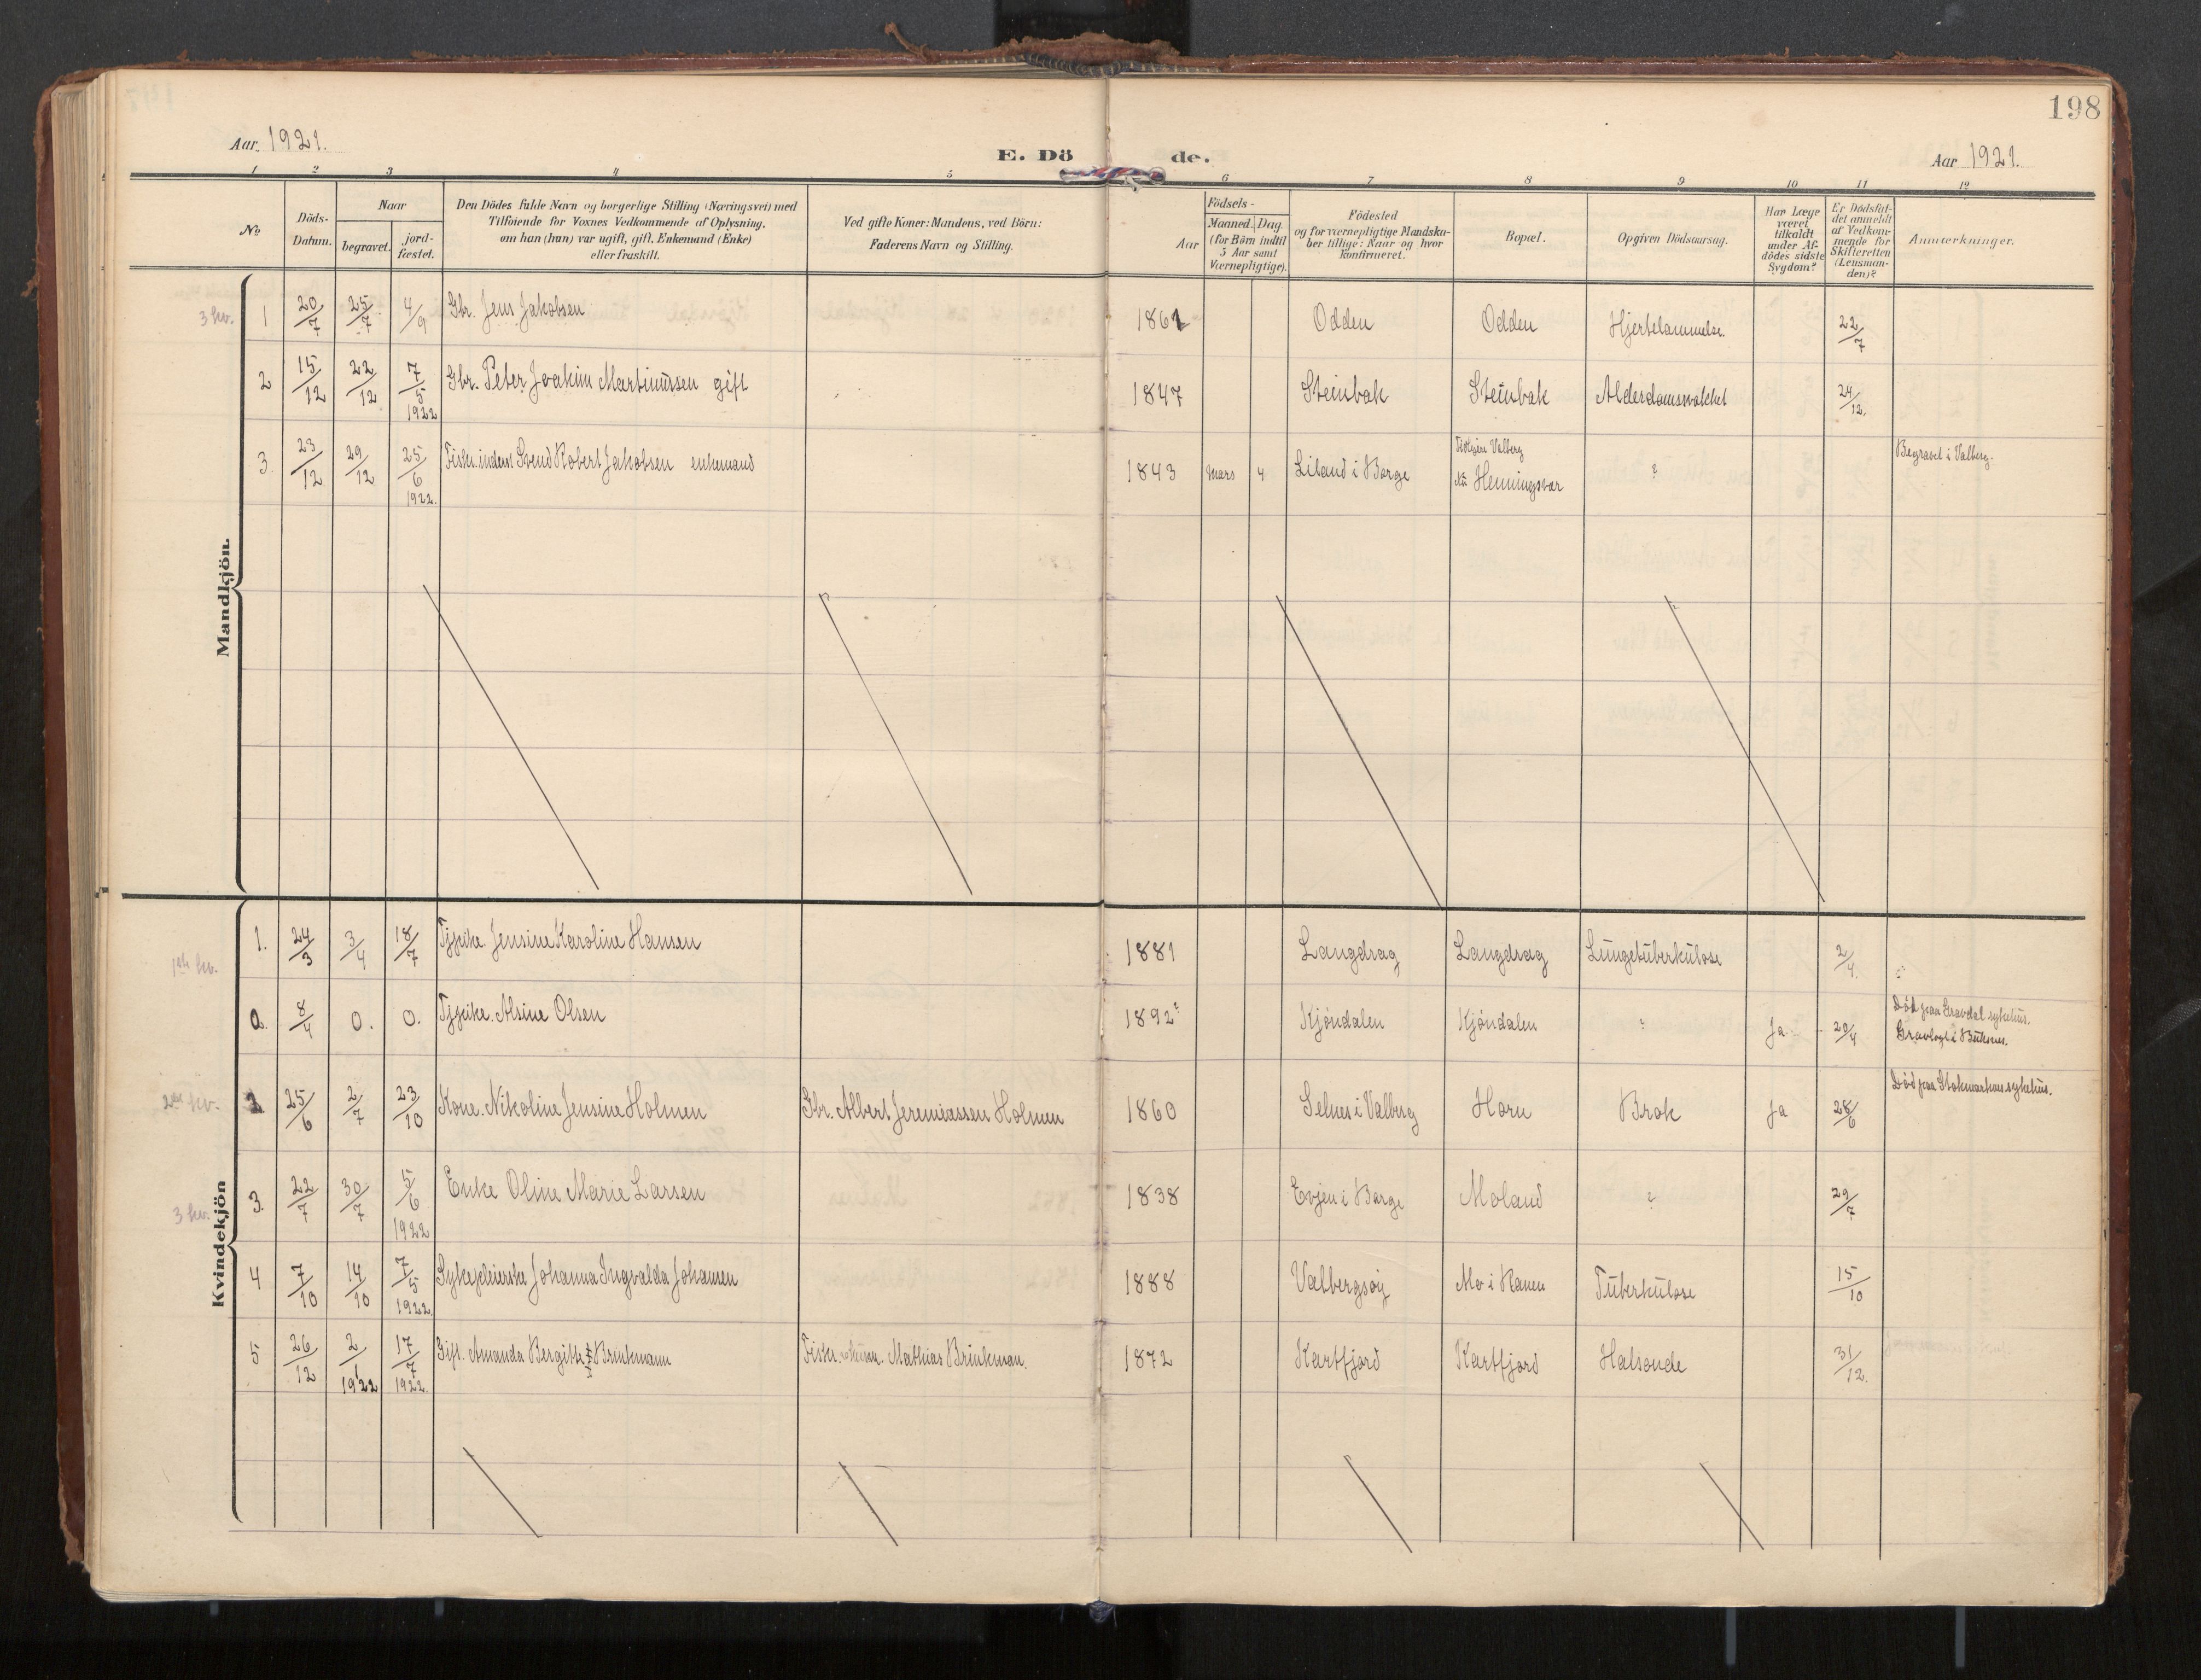 198
Aar. 1921.
E. Dö de.
Aar 1921.
1 2 3 4 5 6 7 8 9 10 11 12
No.
Döds-
Datum.
Naar
begravet.
jord-
fæstet.
Den Dödes fulde Navn og borgerlige Stilling (Næringsvei) med
Tilföiende for Voxnes Vedkommende af Oplysning,
om han (hun) var ugift, gift, Enkemand (Enke)
eller fraskilt.
Ved gifte Koner: Mandens, ved Börn:
Faderens Navn og Stilling.
Födsels-
Aar
Maaned. Dag.
(for Börn indtil
5 Aar samt
Værnepligtige).
Födested
og for værnepligtige Mandska-
ber tillige: Naar og hvor
konfirmeret.
Bopæl.
Opgiven Dödsaarsag.
Har Læge
været
tilkaldt
under Af-
dödes sidste
Sygdom?
Er Dödsfal-
det anmeldt
af Vedkom-
mende for
Skifteretten
(Lensman-
den)?
Anmærkninger.
Mandkjön.
3 kv. 1 20/7 25/7 4/9 Gbr. Jens Jakobsen 1861 Odden Odden Hjertelammelse. 22/7
2 15/12 22/12 7/5 1922 Gbr. Peter Joakim Martinussen gift 1847 Steinbak Steinbak Alderdomssvakhet 24/12.
3. 23/12 29/12 25/6 1922. Fisker. inderst Svend Robert Jakobsen enkemand 1843 Mars 4 Liland i Borge Valberg
Nu Henningsvær ? Begravet i Valberg.
Kvindekjön
1ste kv. 1. 24/3 3/4 18/7 Tjpike. Jensine Karoline Hansen 1881 Langdrag Langdrag Lungetuberkulose 2/4.
0. 8/4 0. 0. Tjpike. Alsine Olsen 1892? Kjöndalen Kjöndalen ? Ja 20/4 Död paa Gravdal sykehus.
Gravlagt i Buksnes.
2det kv. 2 25/6 2/7 23/10 Kone. Nikoline Jensine Holmen Gbr. Albert Jeremiassen Holmen 1860 Selnes i Valberg Horn Brok Ja 28/6 Död paa Stokmarknes sykehus.
3 kv. 3. 22/7 30/7 5/6 1922 Enke Oline Marie Larsen 1838 Evjen i Borge Moland ? 29/7
4 7/10 14/10 7/5 1922. Sykepleierske Johanna Ingvalda Johansen 1888 Valbergsöy Mo i Ranen Tuberkulose 15/10
5 26/12 2/1 1922 17/7 1922. Gift. Amanda Bergithe Brinkmann Fisker. Mathias Brinkman. 1872 Kartfjord Kartfjord Halsonde 31/12.